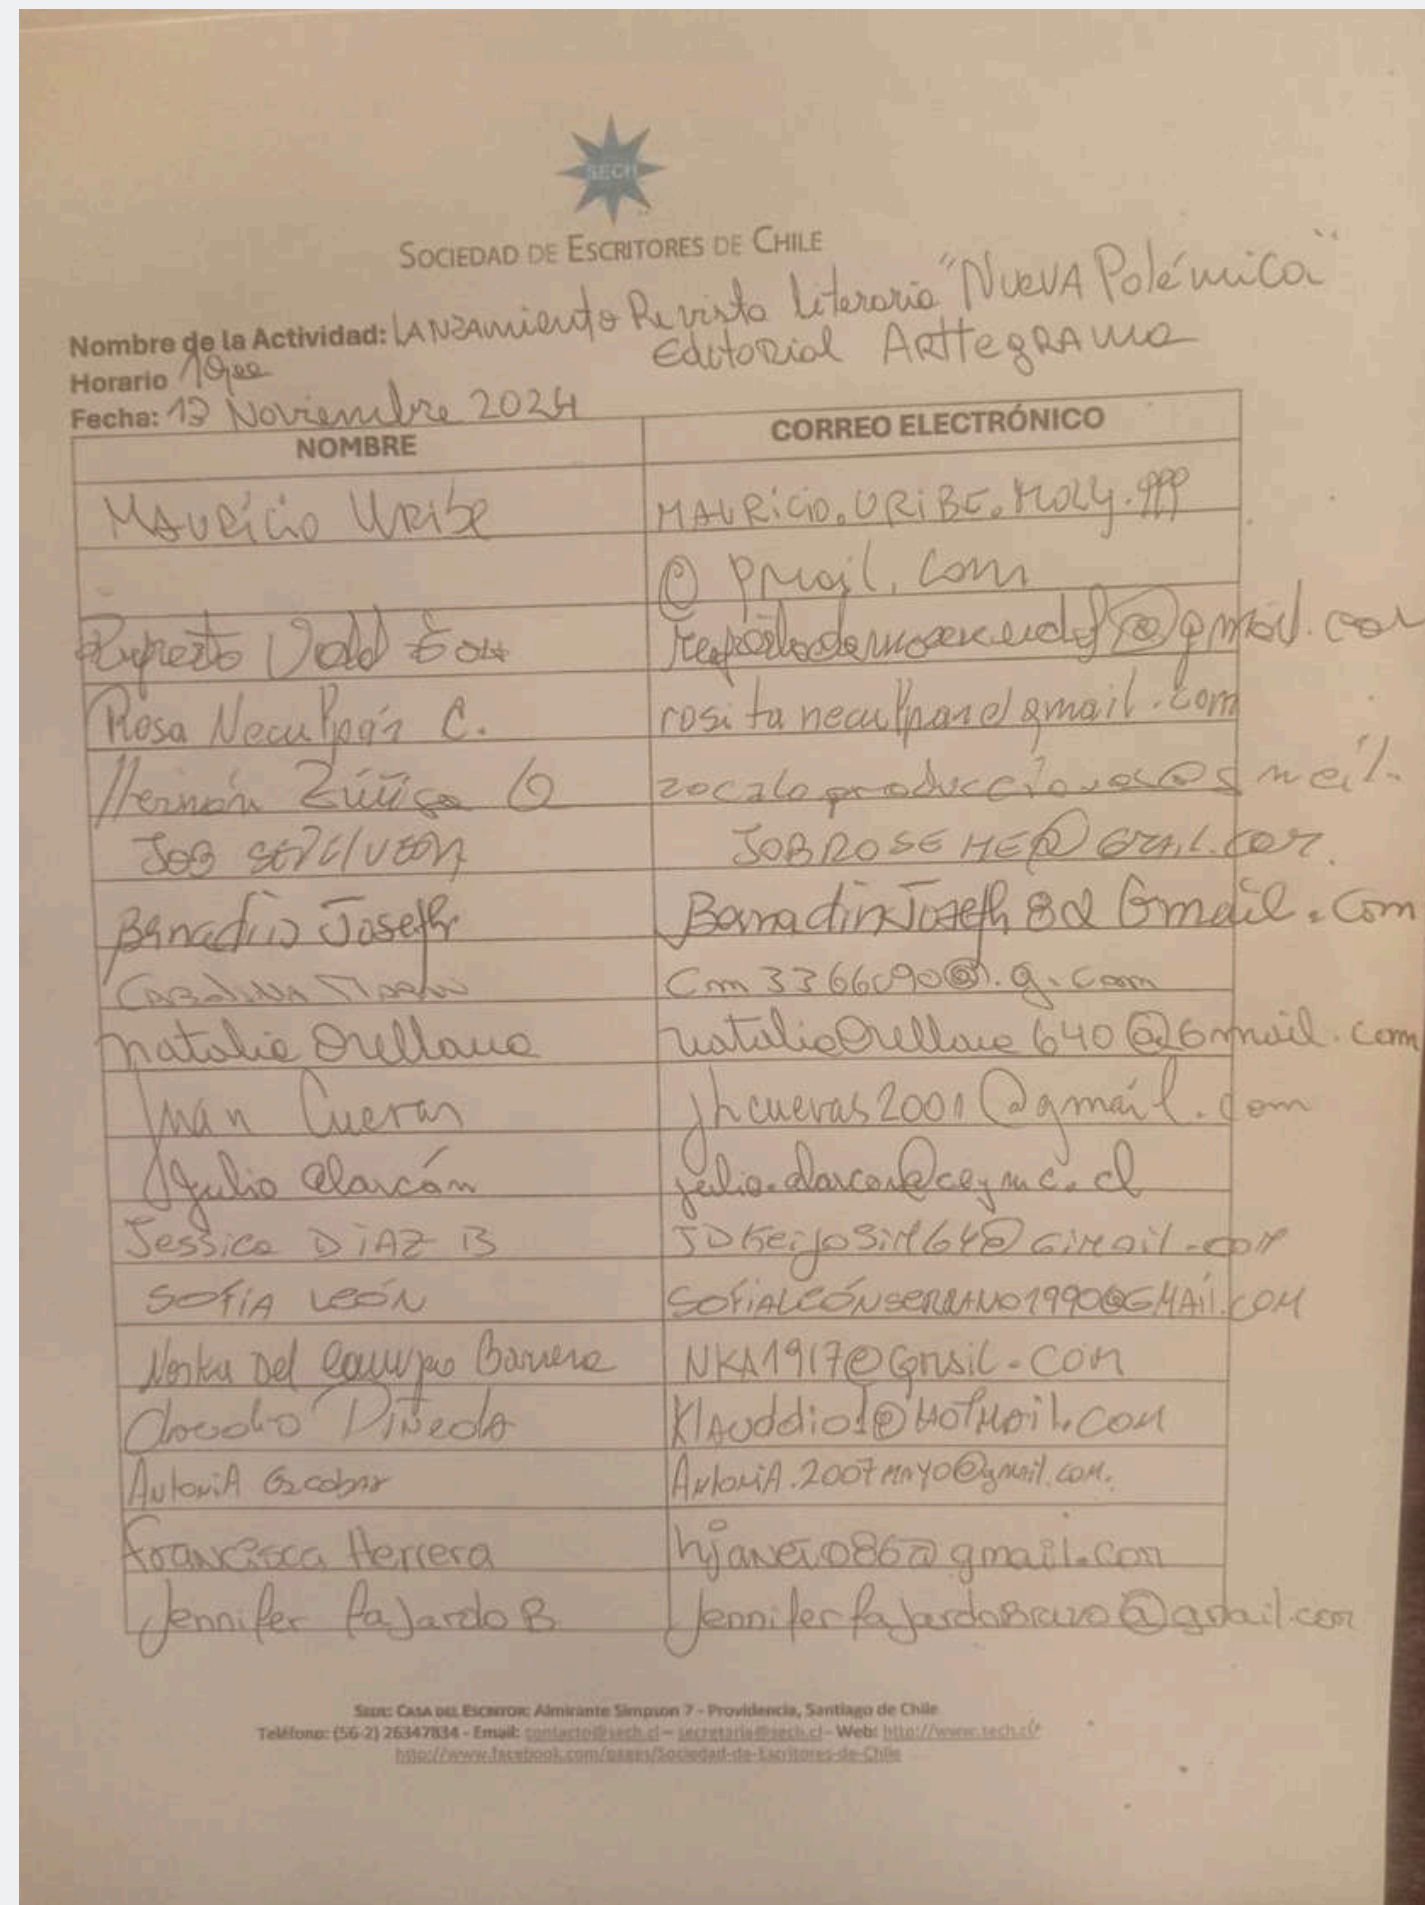 SECH
SOCIEDAD DE ESCRITORES DE CHILE
Nombre de la Actividad: LANZAMIENTO Revista Literaria "NUEVA Polémica"
Editorial ARTTEGRAMA
Horario
Fecha: 13 Noviembre 2024
NOMBRE CORREO ELECTRÓNICO
MAURÍCIO URIBE MAURICIO.URIBE.MOLY.999
@ gmail.com
@gmail.com
Rosa Neculpán C. rositaneculpan@gmail.com
Hernán Zúñiga G zocaloproducciones@gmail.
JOB SEPULVEDA JOBROSEME@GMAIL.COM.
Banadin Joseph BanadinJoseph8@Gmail.com
Cm3366090@.g.com
Natalia Orellana nataliaOrellana640@Gmail.com
Juan Cuevas jhcuevas2001@gmail.com
Julio Alarcón julio.alarcon@ceymc.cl
Jessica DiAZ B @Gimail.com
SOFÍA LEÓN SOFIALEÓNSERRANO1990@GMAIL.COM
Del Campo Barrera NKA1917@Gmail.com
Claudio Piñeda Klauddio1@HOTMAIL.COM
ANTONIA Escobar ANTONIA.2007MAYO@gmail.com.
Francisca Herrera hjaneto86@gmail.com
Jennifer fajardo B. JenniferfajardoBravo@gmail.com
SEDE: CASA DEL ESCRITOR: Almirante Simpson 7 - Providencia, Santiago de Chile
Teléfono: (56-2) 26347834 - Email: contacto@sech.cl – secretaria@sech.cl - Web: http://www.sech.cl/
http://www.facebook.com/pages/Sociedad-de-Escritores-de-Chile